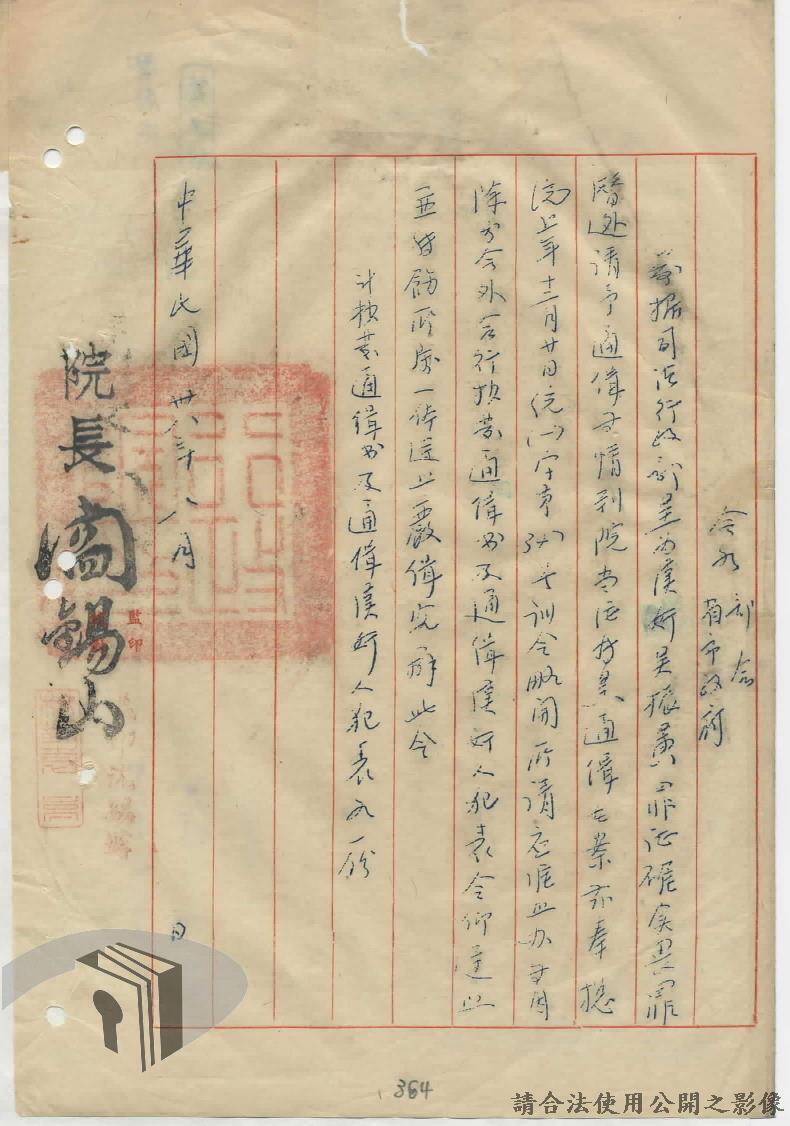 令各部會
省市政府
前據司法行政部呈為漢奸吳振黃罪證確實畏罪
潛逃請予通緝等情到院當經轉呈通緝在案茲奉總
統上年十二月廿日統(一)字第347號訓令略開所請應准照办等因
除分令外合行抄發通緝書及通緝漢奸人犯表令仰遵照
並皆飭所屬一体遵照嚴緝究辦此令
計抄發通緝書及通緝漢奸人犯表各一份
中華民國卅八年八月 日
院長閻錫山
監印
364
請合法使用公開之影像